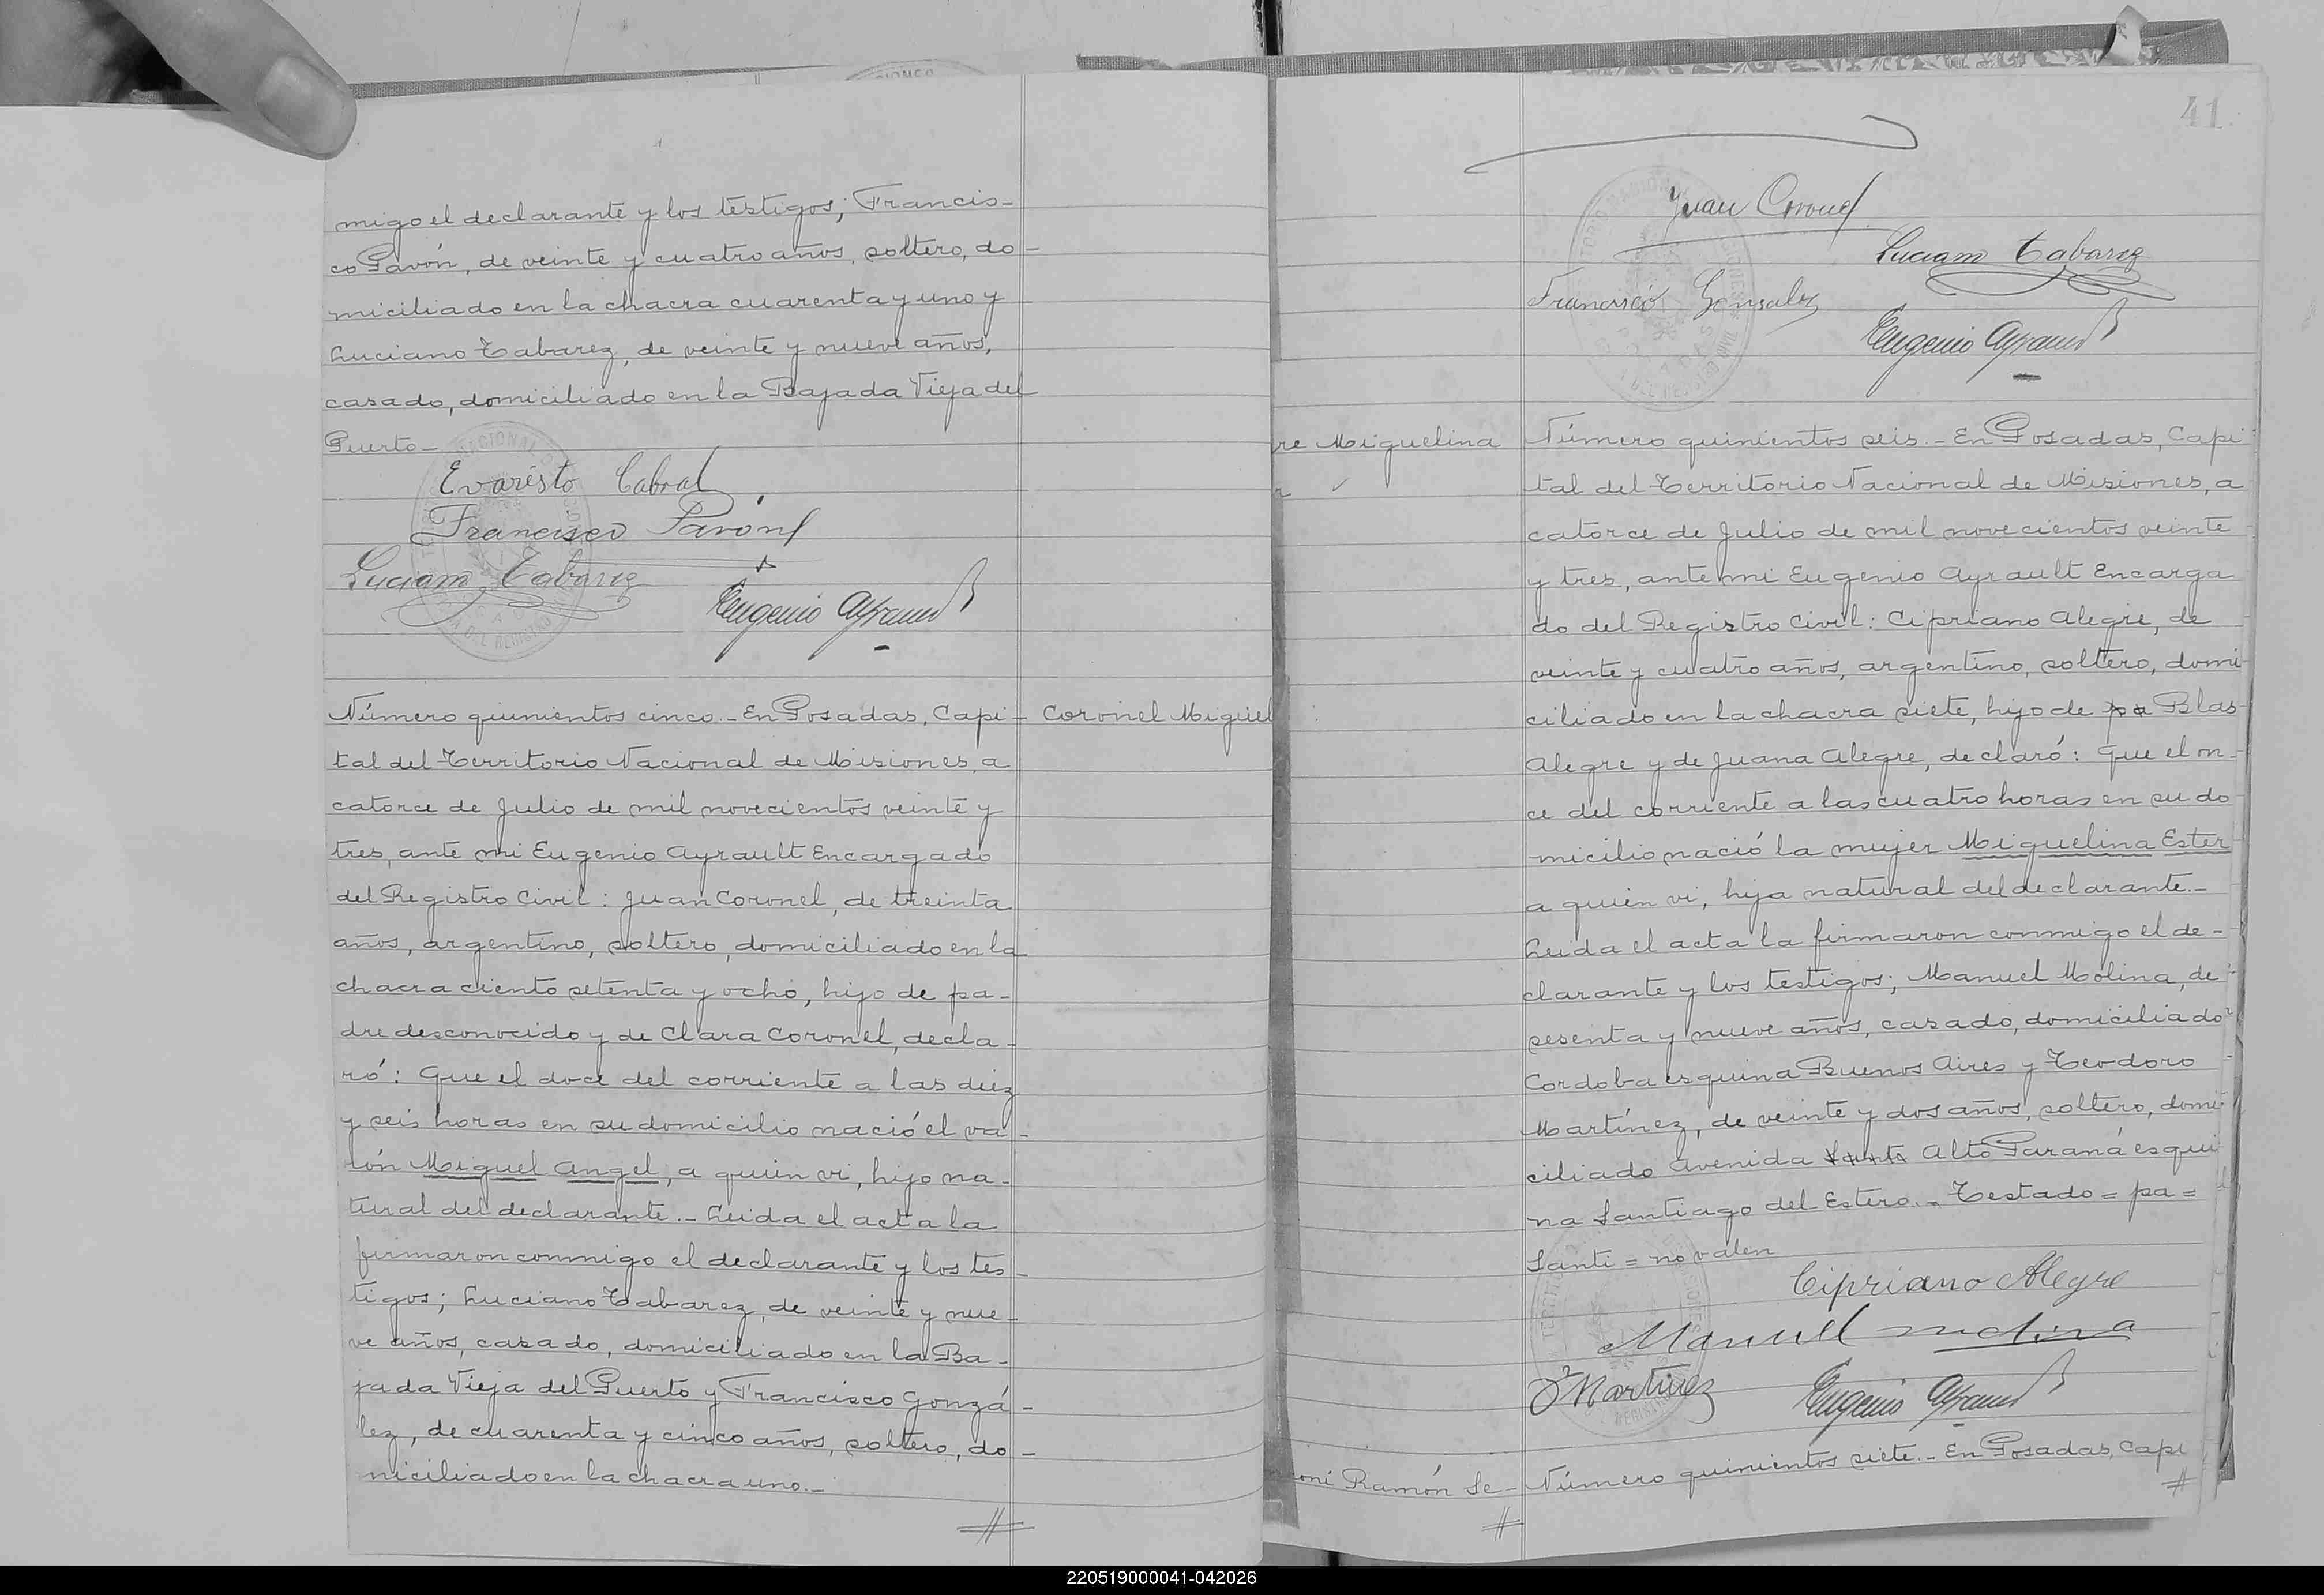 migo el declarante y los testigos; Francis-
co Pavón, de veinte y cuatro años, soltero, do-
miciliado en la chacra cuarenta y uno y
Luciano Tabarez, de veinte y nueve años,
casado, domiciliado en la Bajada Vieja del
Puerto-
Evaristo Cabral
Francisco Pavón
Luciano Tabarez
Eugenio Ayrault
Número quinientos cinco.- En Posadas, Capi-
Coronel Miguel
tal del Territorio Nacional de Misiones, a
catorce de Julio de mil novecientos veinte y
tres, ante mi Eugenio Ayrault Encargado
del Registro Civil: Juan Coronel, de treinta
años, argentino, soltero, domiciliado en la
chacra ciento setenta y ocho, hijo de pa-
dre desconocido y de Clara Coronel, decla-
ró: Que el doce del corriente a las diez
y seis horas en su domicilio nació el va-
rón Miguel Angel, a quien vi, hijo na-
tural del declarante.- Leida el acta la
firmaron conmigo el declarante y los tes-
tigos; Luciano Tabarez, de veinte y nue-
ve años, casado, domiciliado en la Ba-
jada Vieja del Puerto y Francisco Gonzá-
lez, de cuarenta y cinco años, soltero, do-
miciliado en la chacra uno.-
41
Juan Coronel
Luciano Tabarez
Francisco Gonsalez
Eugenio Ayrault
re Miguelina
Número quinientos seis.- En Posadas, Capi
tal del Territorio Nacional de Misiones, a
catorce de Julio de mil novecientos veinte
y tres, ante mi Eugenio Ayrault Encarga
do del Registro Civil: Cipriano Alegre, de
veinte y cuatro años, argentino, soltero, domi-
ciliado en la chacra siete, hijo de pa Blas
Alegre y de Juana Alegre, declaró: Que el on-
ce del corriente a las cuatro horas en su do
micilio nació la mujer Miguelina Ester
a quien vi, hija natural del declarante.-
Leida el acta la firmaron conmigo el de-
clarante y los testigos; Manuel Molina, de
sesenta y nueve años, casado, domiciliado
Cordoba esquina Buenos Aires y Teodoro
Martínez, de veinte y dos años, soltero, domi-
ciliado Avenida Santi Alto Paraná esqui
na Santiago del Estero.- Testado = pa =
Santi = no valen
Cipriano Alegre
Manuel molina
Martinez
Eugenio Ayrault
oni Ramón Se-
Número quinientos siete.- En Posadas, Capi
220519000041-042026